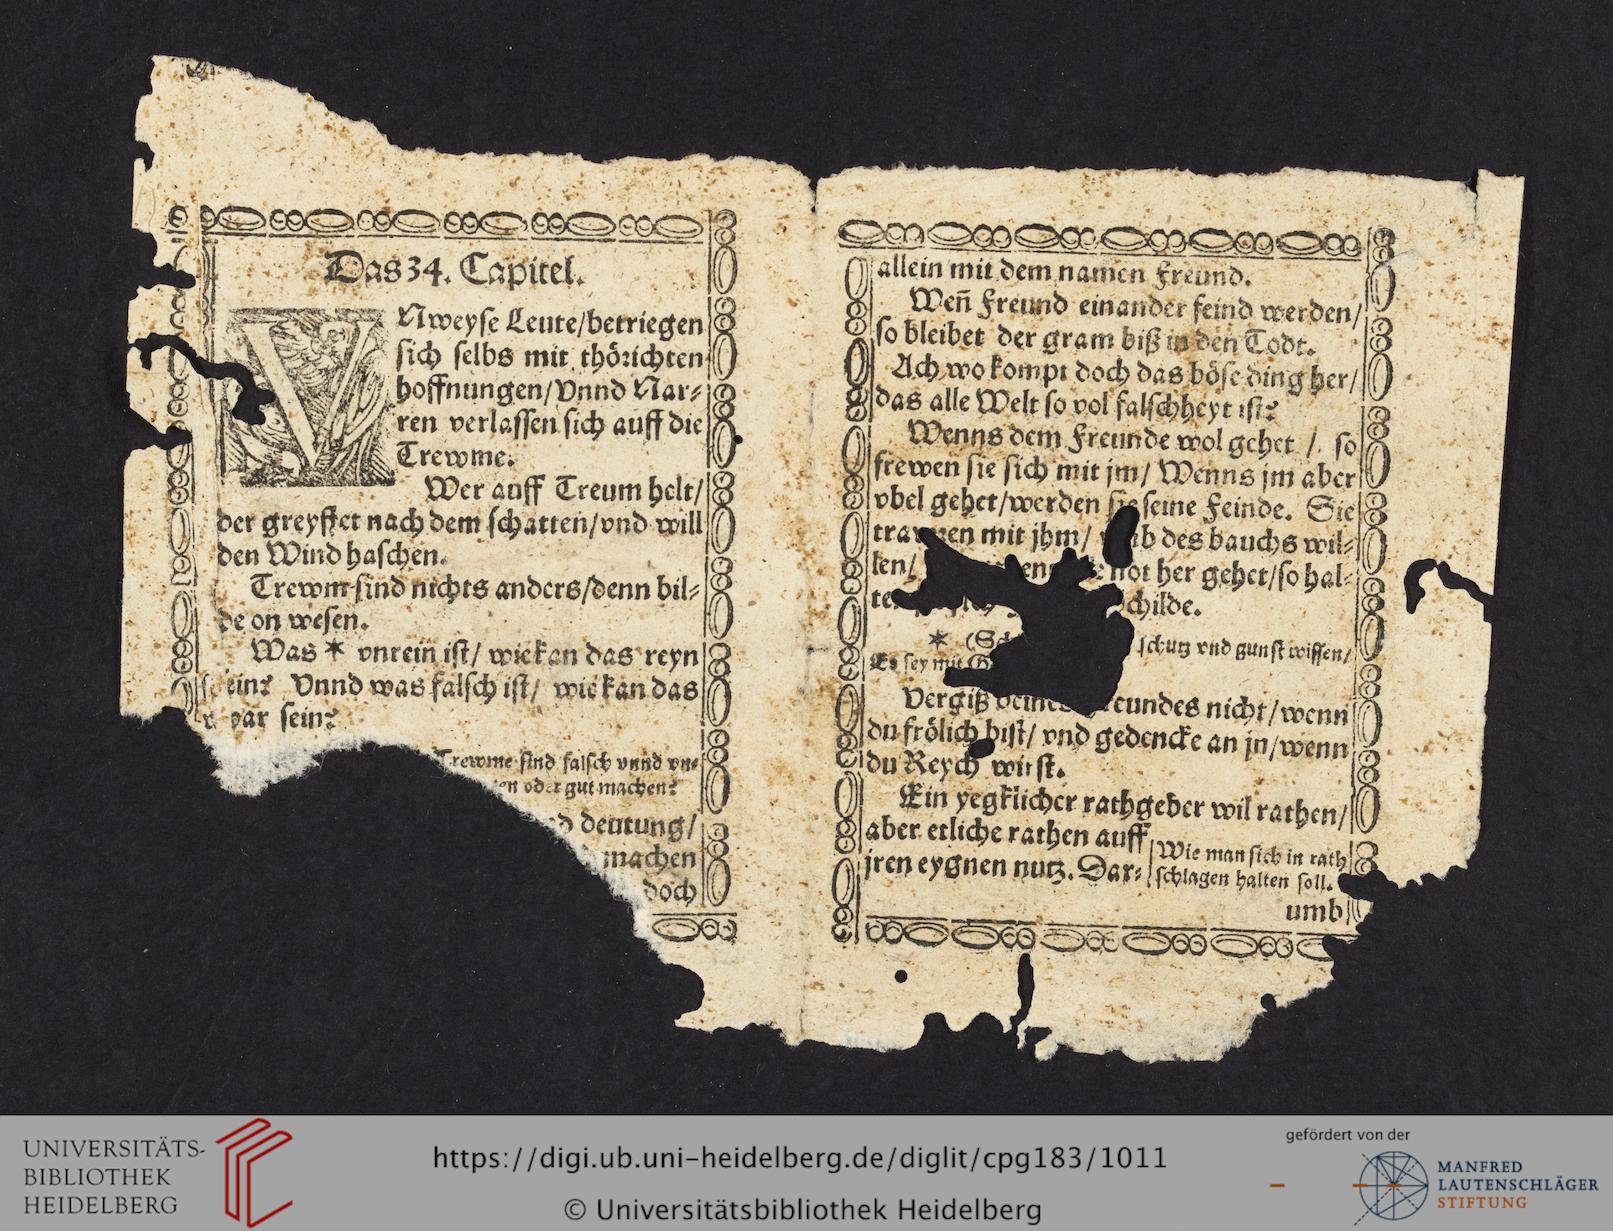 Das 34. Capitel.
VNweyse Leute/betriegen
sich selbs mit thörichten
hoffnungen/Vnnd Nar⸗
ren verlassen sich auff die
Trewme.
Wer auff Treum helt/
der greyffet nach dem schatten/vnd will
den Wind haschen.
Trewm sind nichts anders/denn bil⸗
de on wesen.
Was * vnrein ist/ wie kan das reyn
sein? Vnnd was falsch ist/ wie kan das
war sein?
Trewme sind falsch vnnd vn⸗
oder gut machen?
deutung/
machen
doch
allein mit dem namen Freund.
Weñ Freund einander feind werden/
so bleibet der gram biß in den Todt.
Ach wo kompt doch das böse ding her/
das alle Welt so vol falschheyt ist?
Wenns dem Freunde wol gehet /. so
frewen sie sich mit jm/ Wenns jm aber
vbel gehet/werden sie seine Feinde. Sie
mit jhm/ des bauchs wil⸗
len/ not her gehet/so hal⸗
childe.
* schutz vnd gunst wissen/
Es sey mit
Vergiß deines Freundes nicht/wenn
du frölich bist/ vnd gedencke an jn/wenn
du Reych wirst.
Ein yegklicher rathgeber wil rathen/
aber etliche rathen auff
jren eygnen nutz. Dar⸗
Wie man sich in rath
schlagen halten soll.
umb
UNIVERSITÄTS-
BIBLIOTHEK
HEIDELBERG
https://digi.ub.uni-heidelberg.de/diglit/cpg183/1011
© Universitätsbibliothek Heidelberg
gefördert von der
MANFRED
LAUTENSCHLÄGER
STIFTUNG